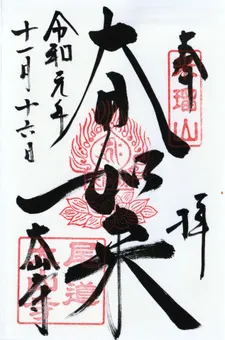 奉
拝
大日如来
令和元年
十一月十六日
大山寺
尾道